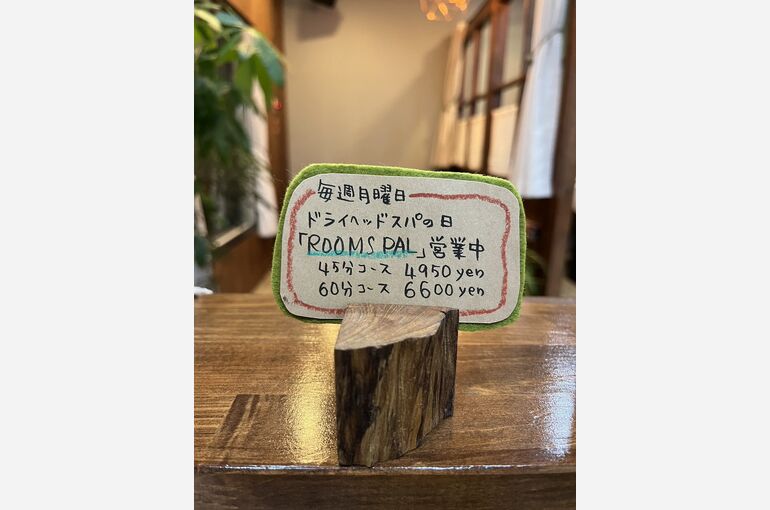 毎週月曜日
ドライヘッドスパの日
「ROOMS PAL」営業中
45分コース 4950yen
60分コース 6600yen